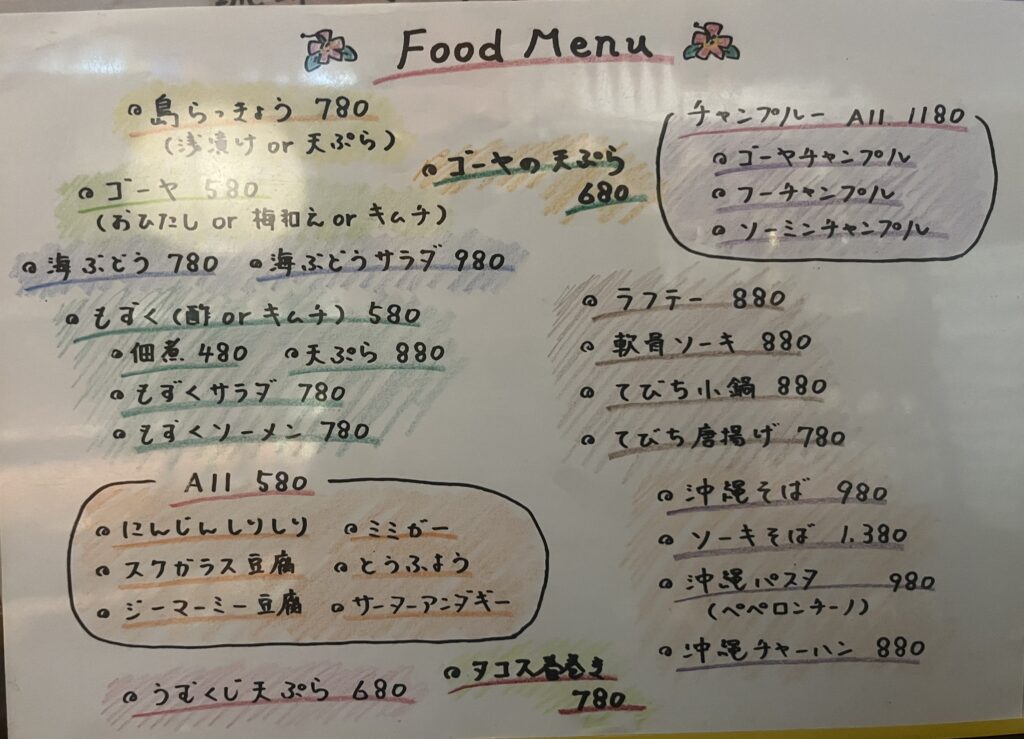 Food Menu
島らっきょう 780
(浅漬け or 天ぷら)
ゴーヤ 580
(おひたし or 梅和え or キムチ)
ゴーヤの天ぷら
680
海ぶどう 780 海ぶどうサラダ 980
もずく(酢 or キムチ) 580
佃煮 480 天ぷら 880
もずくサラダ 780
もずくソーメン 780
All 580
にんじんしりしり ミミガー
スクガラス豆腐 とうふよう
ジーマーミー豆腐 サーターアンダギー
うむくじ天ぷら 680
タコス春巻き
780
チャンプルー All 1180
ゴーヤチャンプル
フーチャンプル
ソーミンチャンプル
ラフテー 880
軟骨ソーキ 880
てびち小鍋 880
てびち唐揚げ 780
沖縄そば 980
ソーキそば 1.380
沖縄パスタ 980
(ペペロンチーノ)
沖縄チャーハン 880